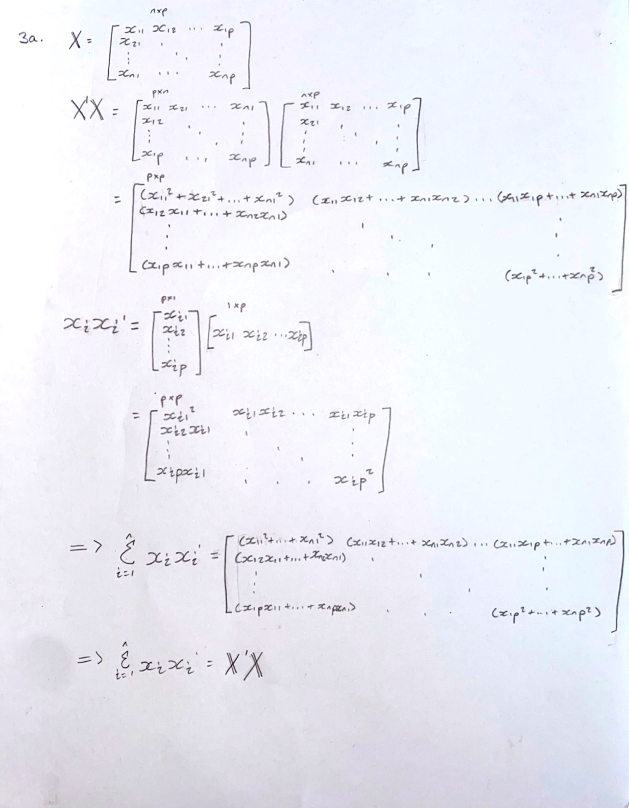 n×p
3a. X = [ x₁₁ x₁₂ ... x₁p
x₂₁ . .
⋮ . ⋮
xₙ₁ ... xₙp ]
p×n n×p
X'X = [ x₁₁ x₂₁ ... xₙ₁ ] [ x₁₁ x₁₂ ... x₁p ]
x₁₂ . . x₂₁ . .
⋮ . ⋮ ⋮ . ⋮
x₁p ... xₙp xₙ₁ ... xₙp
p×p
= [ (x₁₁² + x₂₁² + ... + xₙ₁²) (x₁₁x₁₂ + ... + xₙ₁xₙ₂) ... (x₁₁x₁p + ... + xₙ₁xₙp)
(x₁₂x₁₁ + ... + xₙ₂xₙ₁)
⋮ . . . ⋮
(x₁px₁₁ + ... + xₙpxₙ₁) . . . (x₁p² + ... + xₙp²) ]
p×1 1×p
xᵢxᵢ' = [ xᵢ₁ [ xᵢ₁ xᵢ₂ ... xᵢp ]
xᵢ₂
⋮
xᵢp ]
p×p
= [ xᵢ₁² xᵢ₁xᵢ₂ ... xᵢ₁xᵢp
xᵢ₂xᵢ₁ . .
⋮ . . ⋮
xᵢpxᵢ₁ . . . xᵢp² ]
=> Σⁿᵢ₌₁ xᵢxᵢ' = [ (x₁₁² + ... + xₙ₁²) (x₁₁x₁₂ + ... + xₙ₁xₙ₂) ... (x₁₁x₁p + ... + xₙ₁xₙp)
(x₁₂x₁₁ + ... + xₙ₂xₙ₁) .
⋮ . . ⋮
(x₁px₁₁ + ... + xₙpxₙ₁) . . . (x₁p² + ... + xₙp²) ]
=> Σⁿᵢ₌₁ xᵢxᵢ' = X'X